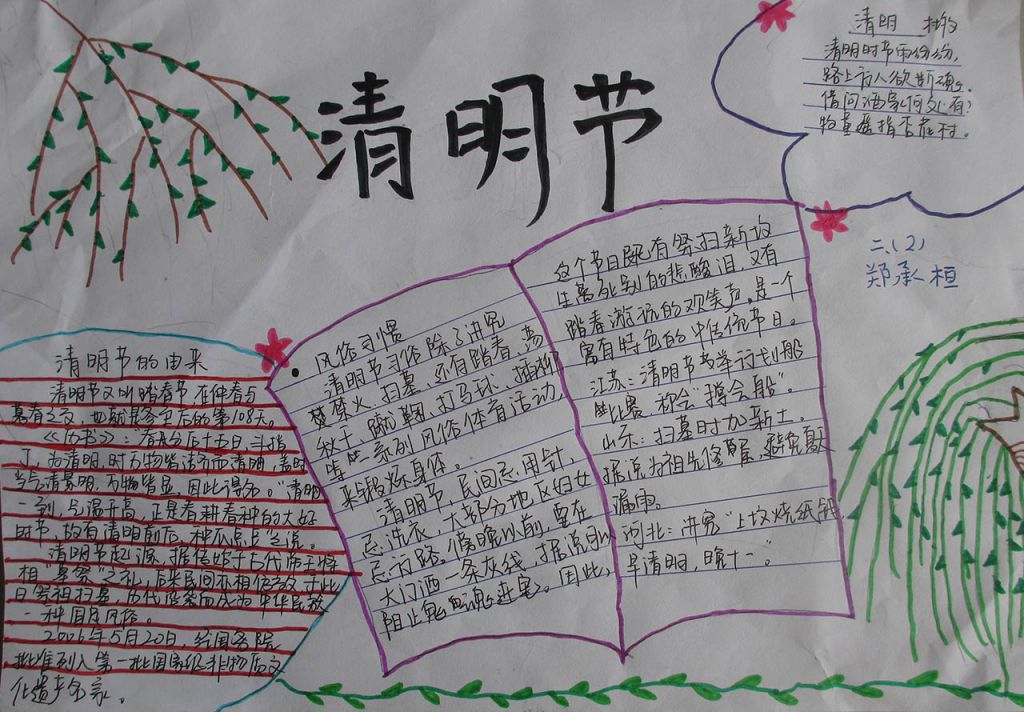 清明节
清明 杜牧
清明时节雨纷纷,
路上行人欲断魂。
借问酒家何处有?
牧童遥指杏花村。
二、(2)
郑承桓
清明节的由来
清明节又叫踏青节,在仲春与
暮春之交,也就是冬至后的第108天。
《历书》:“春分后十五日,斗指
丁,为清明,时万物皆洁齐而清明,盖时
当气清景明,万物皆显,因此得名。”清明
一到,气温升高,正是春耕春种的大好
时节,故有“清明前后,种瓜点豆”之说。
清明节起源,据传始于古代帝王将
相“墓祭”之礼,后来民间亦相仿效,于此
日祭祖扫墓,历代沿袭而成为中华民族
一种固定风俗。
2006年5月20日,经国务院
批准列入第一批国家级非物质文
化遗产名录。
风俗习惯
清明节习俗除了讲究
禁火、扫墓,还有踏青、荡
秋千、蹴鞠、打马球、插柳
等一系列风俗体育活动
来锻炼身体。
清明节,民间忌用针,
忌洗衣,大部分地区妇女
忌行路。傍晚以前,要在
大门洒一条灰线,据说可以
阻止鬼魂进宅。因此,
这个节日既有祭扫新坟
生离死别的悲酸泪,又有
踏春游玩的欢笑声,是一个
富有特色的中传统节日。
江苏:清明节举行划船
比赛,称会“撑会船”。
山东:扫墓时加新土。
据说为祖先修屋,避免夏天
漏雨。
河北:讲究“上坟烧纸钱
早清明,晚十一”